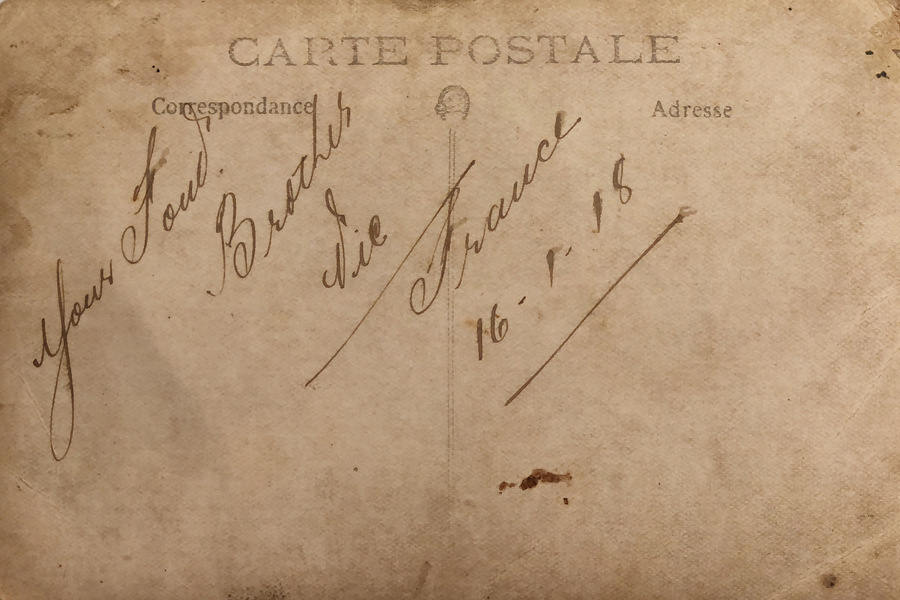 CARTE POSTALE
Correspondance
Adresse
Your Fond
Brother
Vic
France
16-1-18